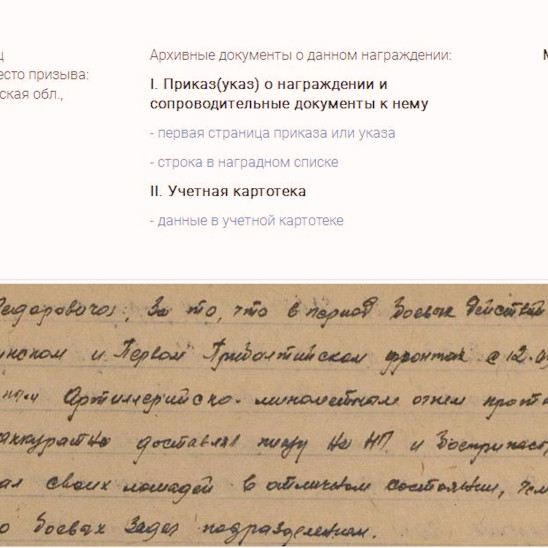 ц
Архивные документы о данном награждении:
М
есто призыва:
ская обл.,
I. Приказ(указ) о награждении и
сопроводительные документы к нему
- первая страница приказа или указа
- строка в наградном списке
II. Учетная картотека
- данные в учетной картотеке
едоровича, За то, что в период боевых действий
нском и Первом Прибалтийском фронтах с 12.
Артиллерийско-минометном огнем
аккуратно доставлял пищу на НП и
ал своих лошадей в отличном состоянии,
о боевых задач подразделением.